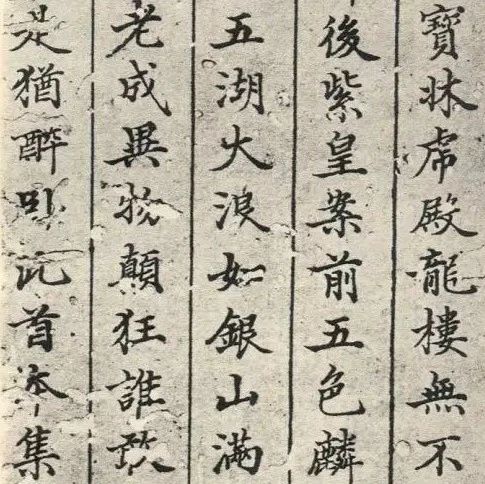 寶牀虎殿龍樓無不
後紫皇案前五色麟
五湖大浪如銀山滿
老成異物顛狂誰敢
是猶醉叫此首本集